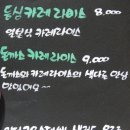 등심카레라이스 8,000
일본식 카레라이스
돈까스 카레라이스 9,000
돈까스와 카레라이스의 색다른 만남
맛있어요~